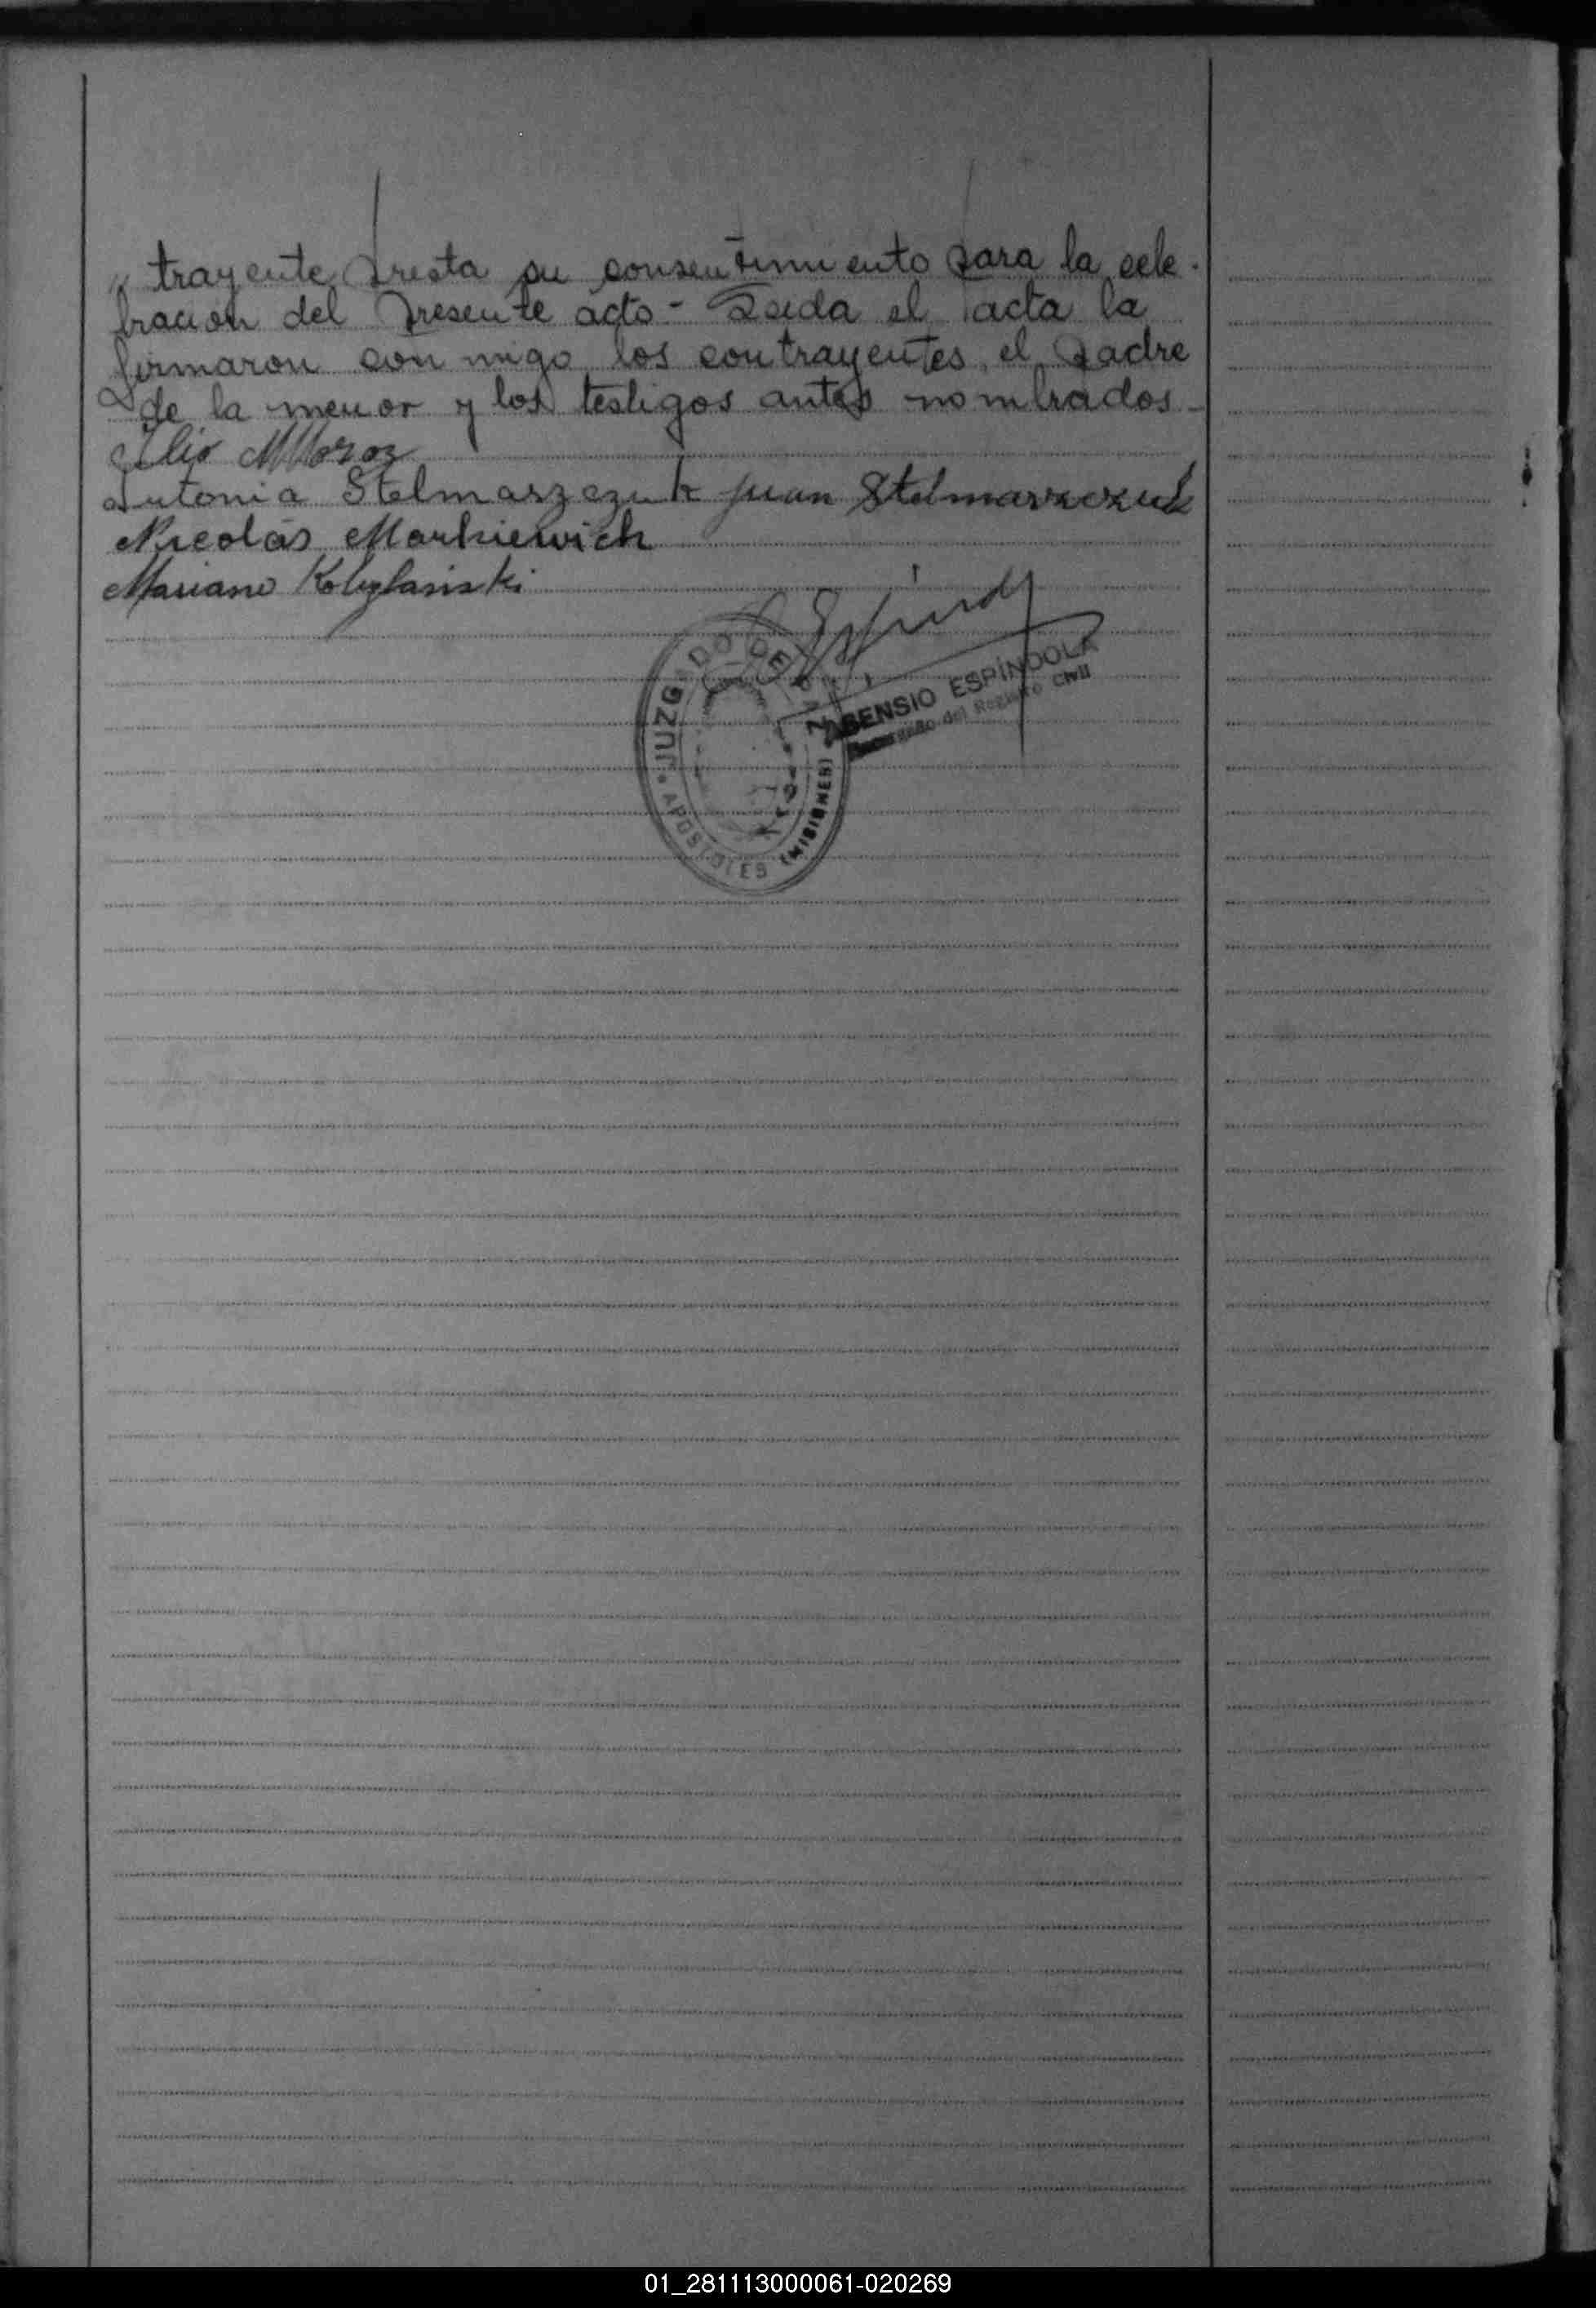 " trayente presta su consentimiento para la cele-
bracion del presente acto - Leida el acta la
firmaron con migo los contrayentes, el padre
de la menor y los testigos antes nombrados -
Moroz
Antonia Stelmaszczuk Juan Stelmaszczuk
Nicolás Markiewich
Mariano Kobylanski
JUZGADO DE PAZ
APOSTOLES (MISIONES)
ASENSIO ESPÍNDOLA
Encargado del Registro Civil
01_281113000061-020269